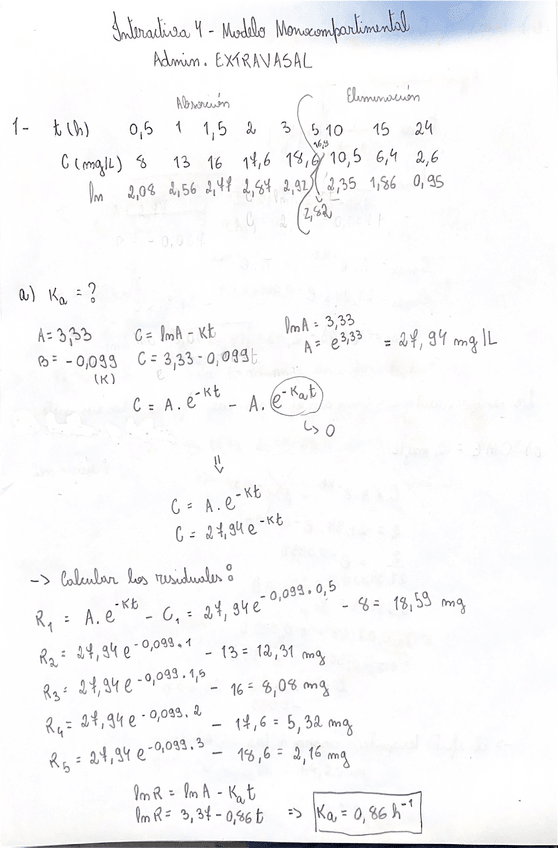 Interactiva 4 - Modelo Monocompartimental
Admin. EXTRAVASAL
Absorción Eliminación
1- t(h) 0,5 1 1,5 2 3 5 10 15 24
C(mg/L) 8 13 16 17,6 18,6 16,8 10,5 6,4 2,6
ln 2,08 2,56 2,77 2,87 2,92 2,35 1,86 0,95
2,82
a) Ka = ?
A = 3,33 C = lnA - Kt lnA = 3,33
B = -0,099 C = 3,33 - 0,099t A = e^3,33 = 27,94 mg/L
(K)
C = A. e^-Kt - A. e^-Kat
↳ 0
⇓
C = A. e^-Kt
C = 27,94 e^-Kt
-> Calcular los residuales:
R1 = A. e^-Kt - C1 = 27,94 e^-0,099.0,5 - 8 = 18,59 mg
R2 = 27,94 e^-0,099.1 - 13 = 12,31 mg
R3 = 27,94 e^-0,099.1,5 - 16 = 8,08 mg
R4 = 27,94 e^-0,099.2 - 17,6 = 5,32 mg
R5 = 27,94 e^-0,099.3 - 18,6 = 2,16 mg
lnR = lnA - Kat
lnR = 3,37 - 0,86t => Ka = 0,86 h^-1